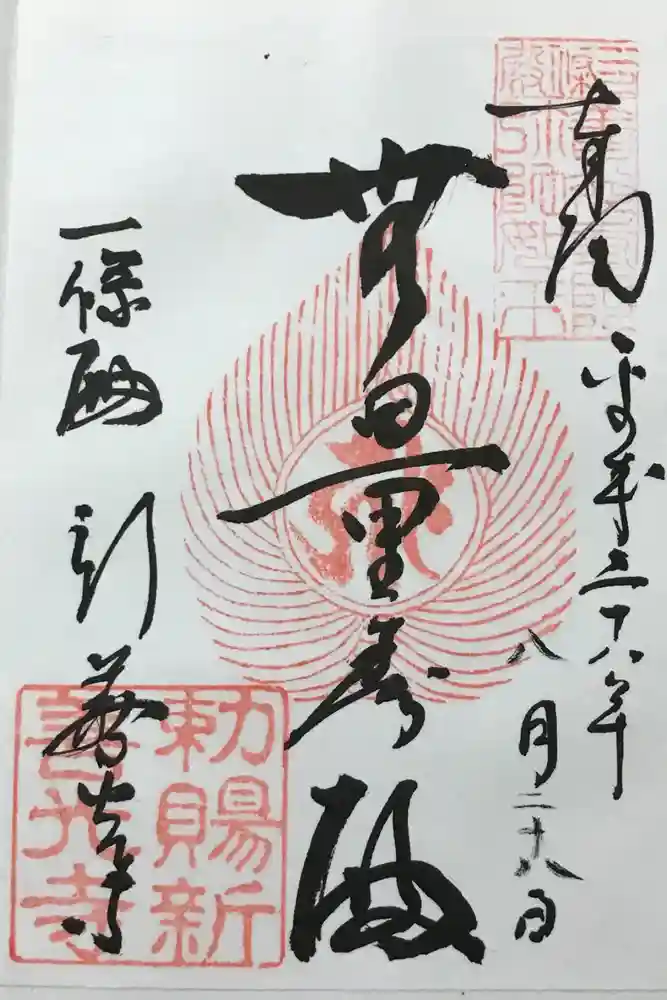 奉拝 平成二十八年
八月二十八日
無量寿殿
一條殿 新善光寺
勅賜新
善光寺